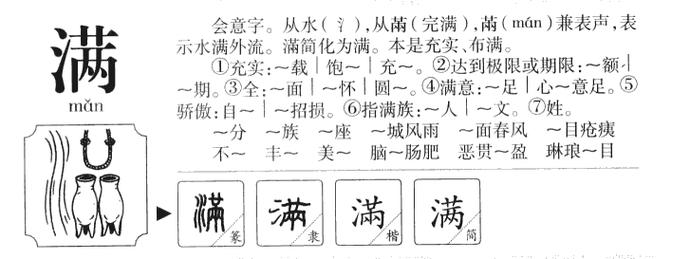 满
mǎn
会意字。从水(氵),从㒼(完满),㒼(mán)兼表声,表
示水满外流。滿简化为满。本是充实、布满。
①充实:～载｜饱～｜充～。②达到极限或期限:～额｜
～期。③全:～面｜～怀｜圆～。④满意:～足｜心～意足。⑤
骄傲:自～｜～招损。⑥指满族:～人｜～文。⑦姓。
～分 ～族 ～座 ～城风雨 ～面春风 ～目疮痍
不～ 丰～ 美～ 脑～肠肥 恶贯～盈 琳琅～目
滿 篆 滿 隶 滿 楷 满 简